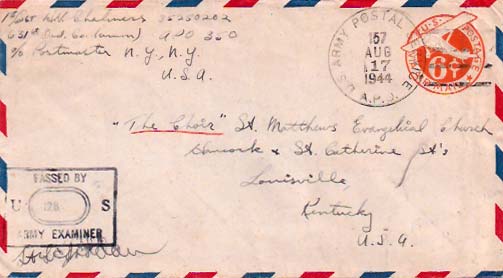 Chalmers 35250202
631st Ord. Co. (ammo) APO 350
c/o Postmaster N.Y., N.Y.
U.S.A.
U.S. ARMY POSTAL SERVICE
157
AUG
17
1944
A.P.O.
U.S. POSTAGE
6¢
AIR MAIL
"The Choir" St. Matthews Evangelical Church
Hancock & St. Catherine St's
Louisville,
Kentucky
U.S.A.
PASSED BY
U S
ARMY EXAMINER